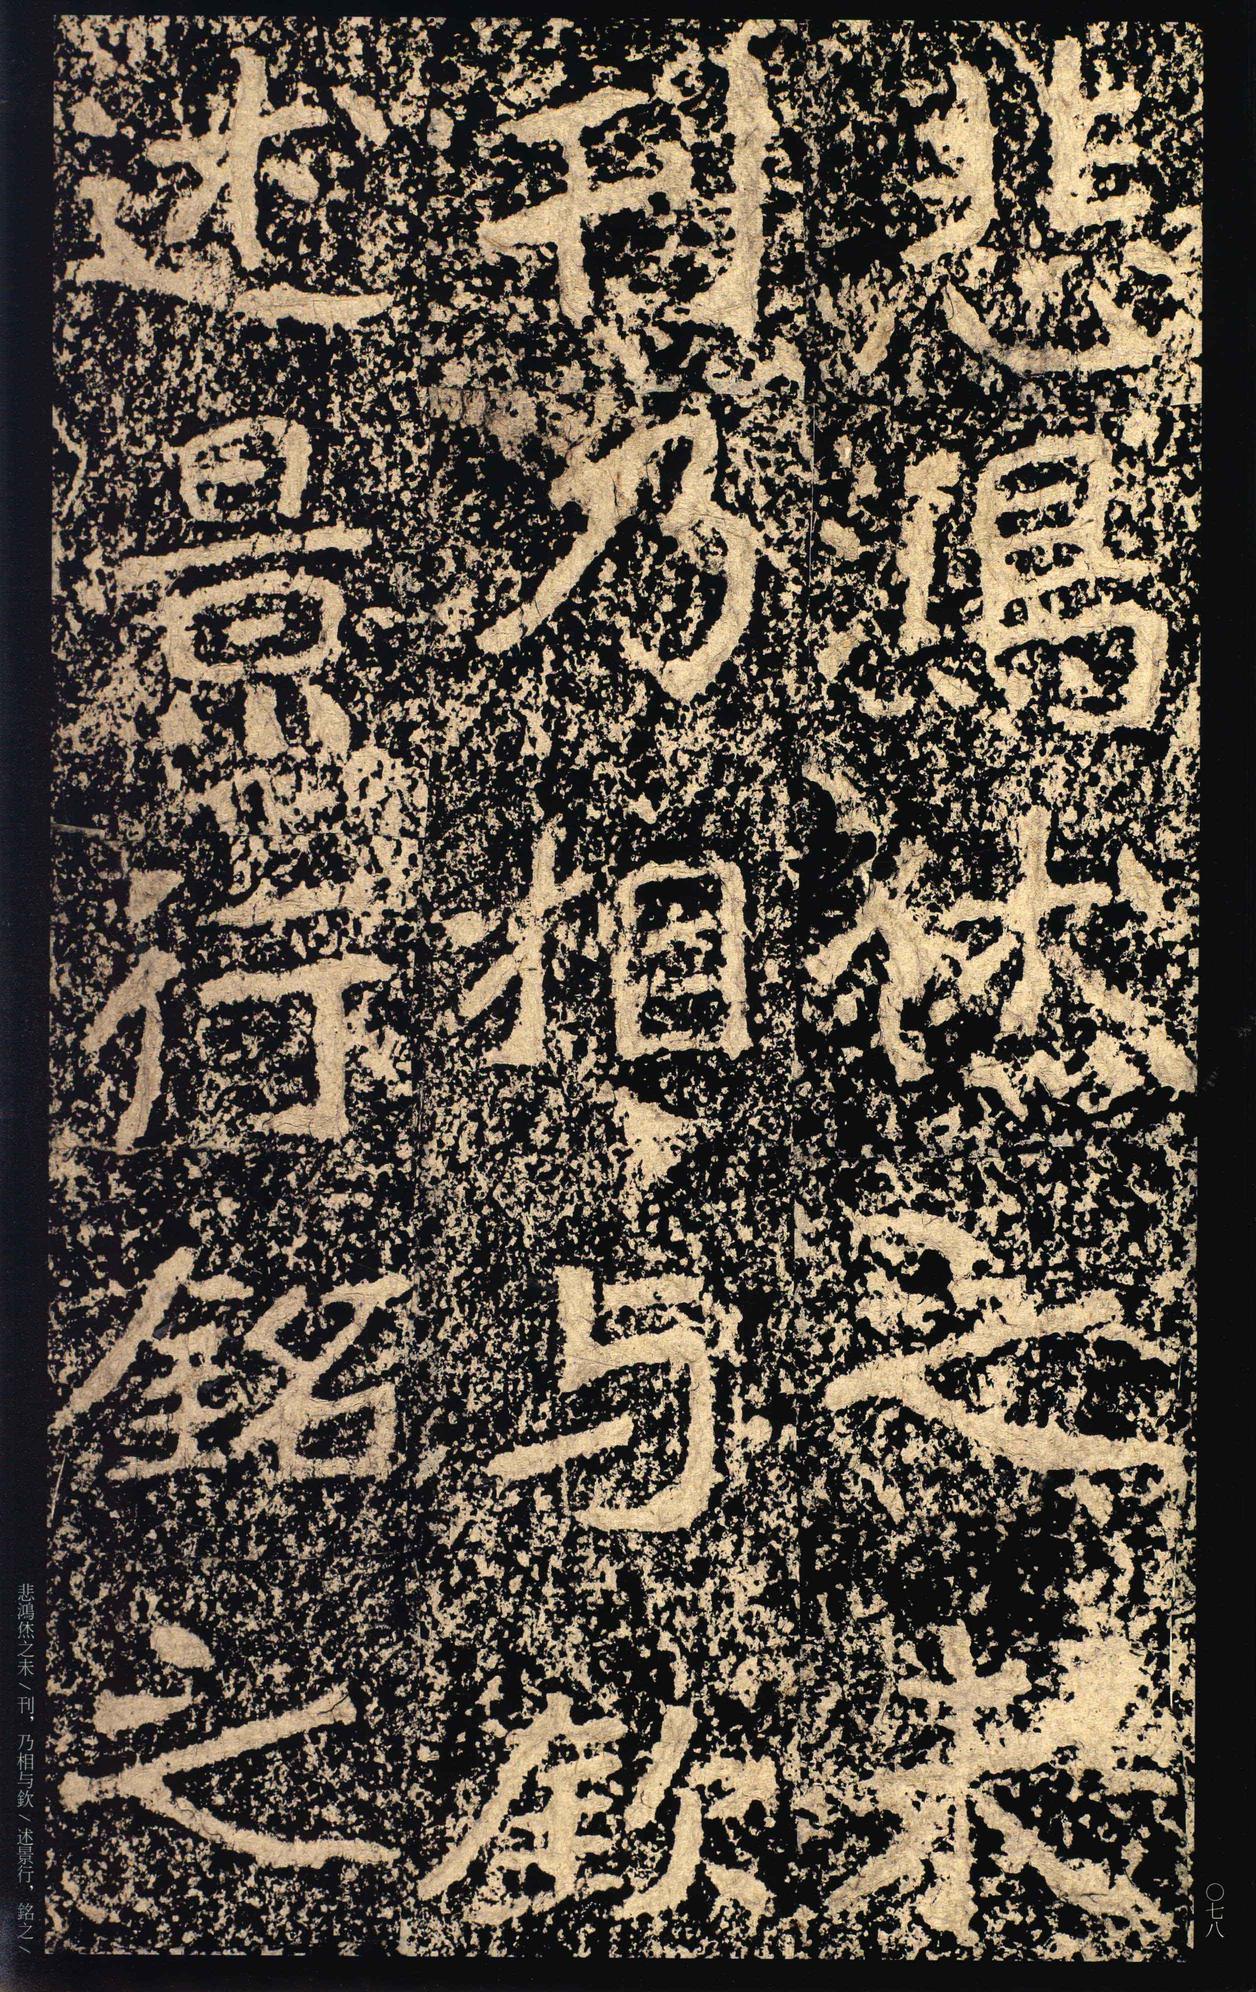 悲鴻烋之未
刊乃相与欽
述景行銘之
悲鴻烋之未\刊，乃相与欽\述景行，銘之\
〇七八